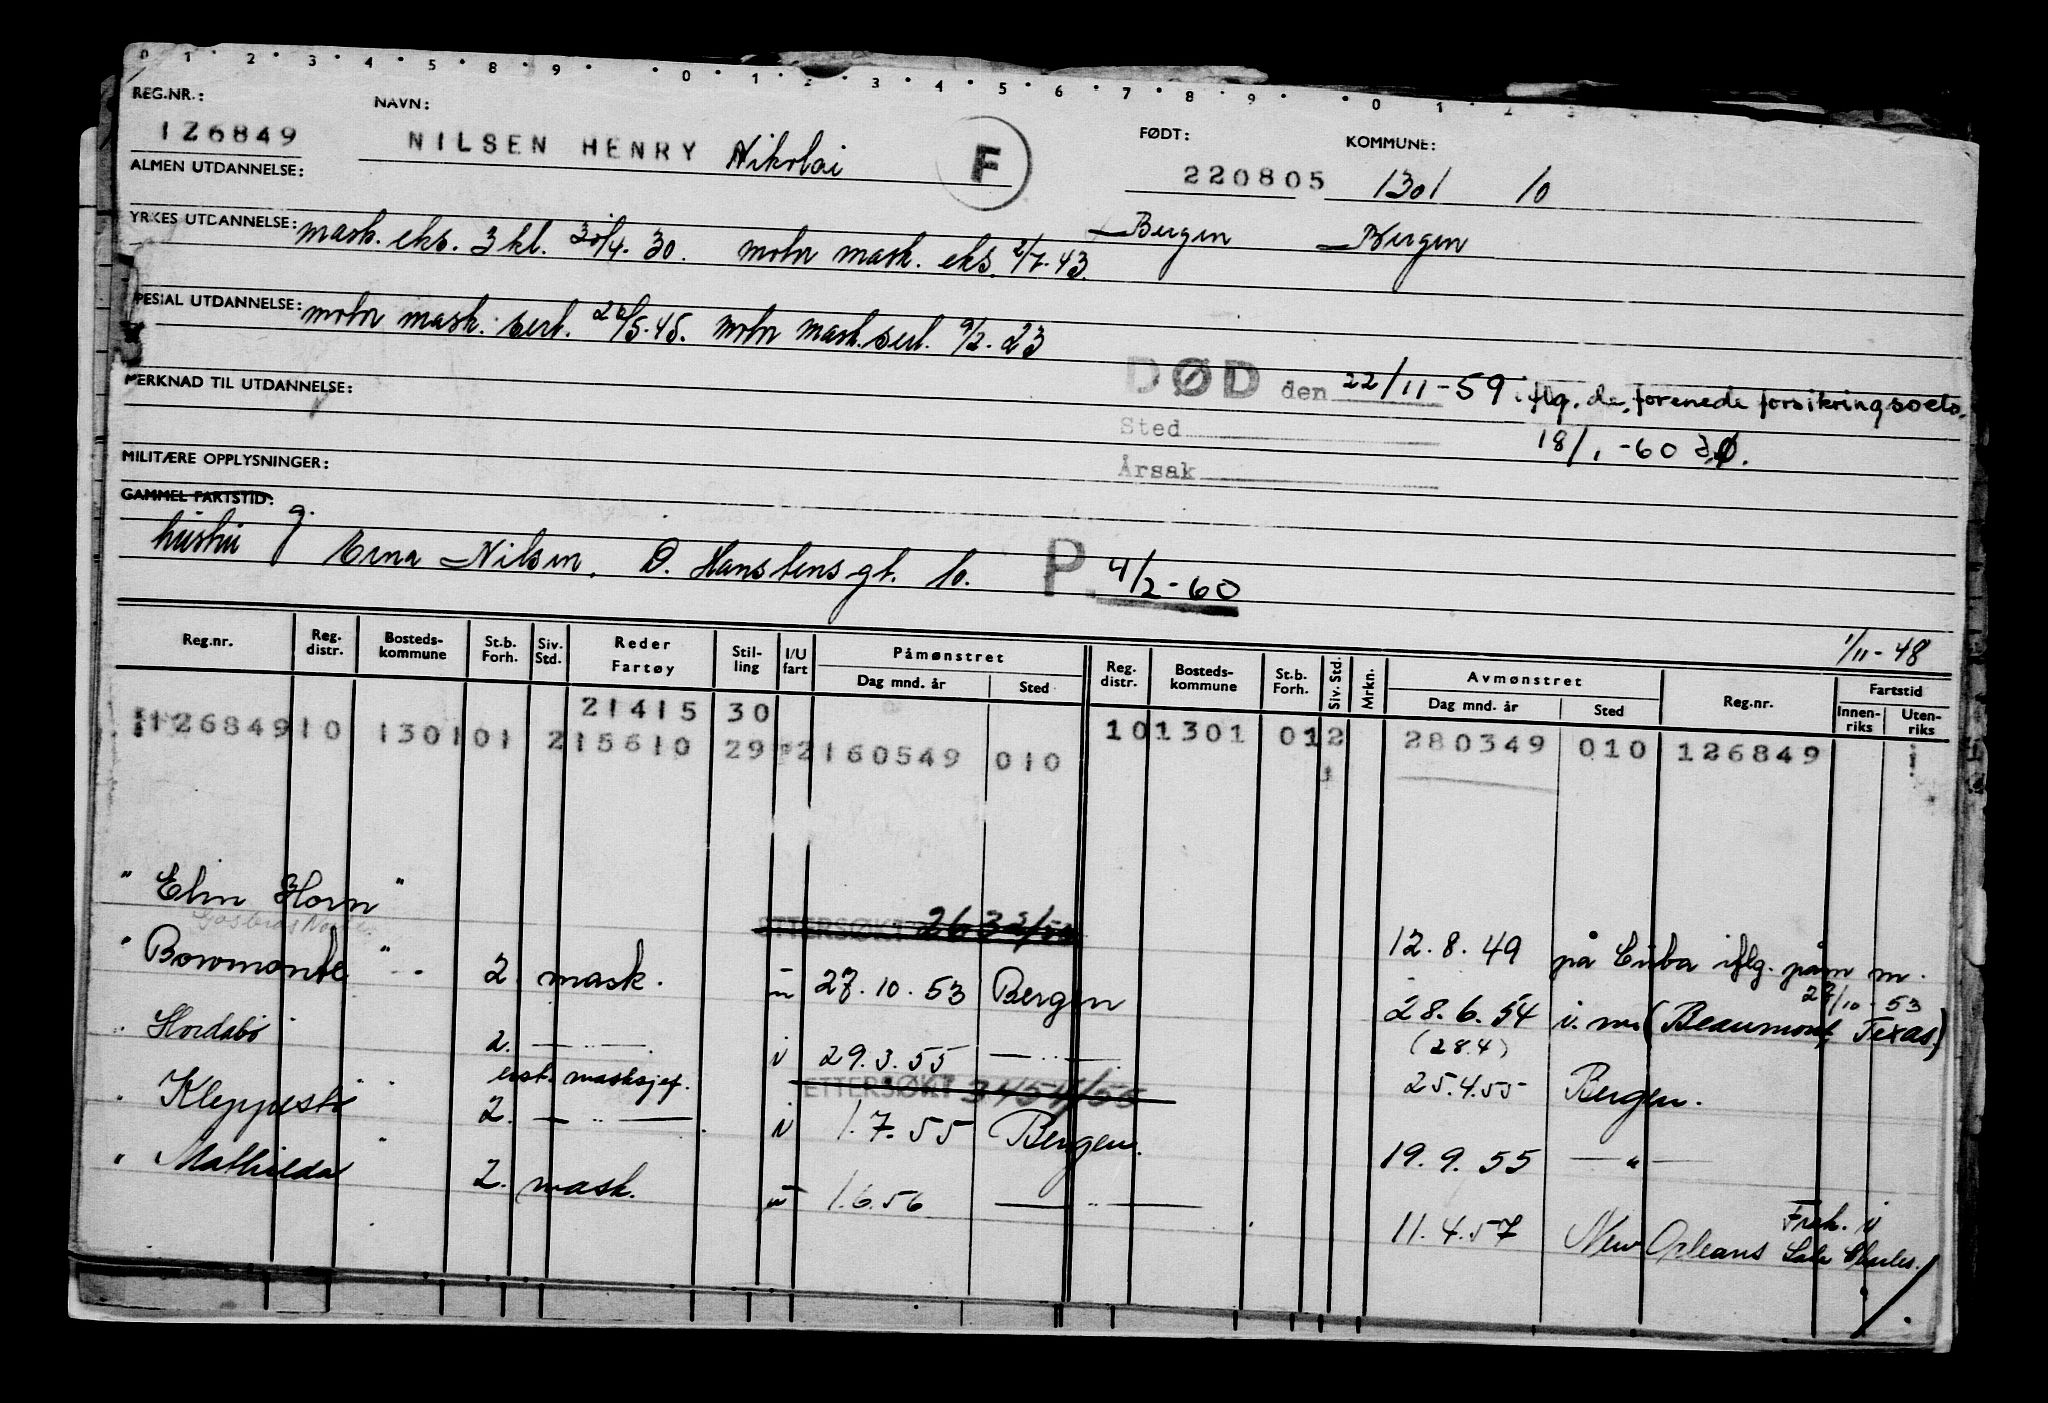 0 1 2 3 4 5 8 9 0 1 2 3 4 5 6 7 8 9 0 1 2 3
REG.NR.: NAVN: FØDT: KOMMUNE:
126849 NILSEN HENRY Nikolai F 220805 1301 10
ALMEN UTDANNELSE:
YRKES UTDANNELSE: mask. eks. 3 kl. 30/4. 30. motor mask. eks. 2/7. 43. Bergen Bergen
SPESIAL UTDANNELSE: motor mask. sert. 26/5. 45. motor mask. sert. 9/2. 23
MERKNAD TIL UTDANNELSE: DØD den 22/11-59 iflg. de forenede forsikringssels.
Sted 18/1-60
MILITÆRE OPPLYSNINGER: Årsak
GAMMEL FARTSTID: g.
hustru Erna Nilsen, D. Hanstensgt. 10. P. 4/2-60
1/11-48
Reg.nr. Reg. distr. Bosteds-kommune St.b. Forh. Siv. Std. Reder Fartøy Stil-ling I/U fart Påmønstret Dag mnd. år Sted Reg. distr. Bosteds-kommune St.b. Forh. Siv. Std. Mrkn. Avmønstret Dag mnd. år Sted Reg.nr. Fartstid Innen-riks Uten-riks
21415 30
126849 10 1301 01 2 15610 29 2 160549 010 10 1301 01 2 280349 010 126849
" Elin Horn " ETTERSØKT 12.8.49 på Cuba iflg. påm m.
27/10-53
" Bowmonte " 2. mask. u 27.10.53 Bergen 28.6.54 i. m. (Beaumont, Texas)
(28.4)
" Hordabø 2. — " — i 29.3.55 — " — 25.4.55 Bergen.
ETTERSØKT
" Kleppestø " 2. — " — i 1.7.55 Bergen. 19.9.55 — " —
asst. masksjef.
" Mathilda " 2. mask. u 1.6.56 — " — 11.4.57 New Orleans Frak. i Lake Charles.